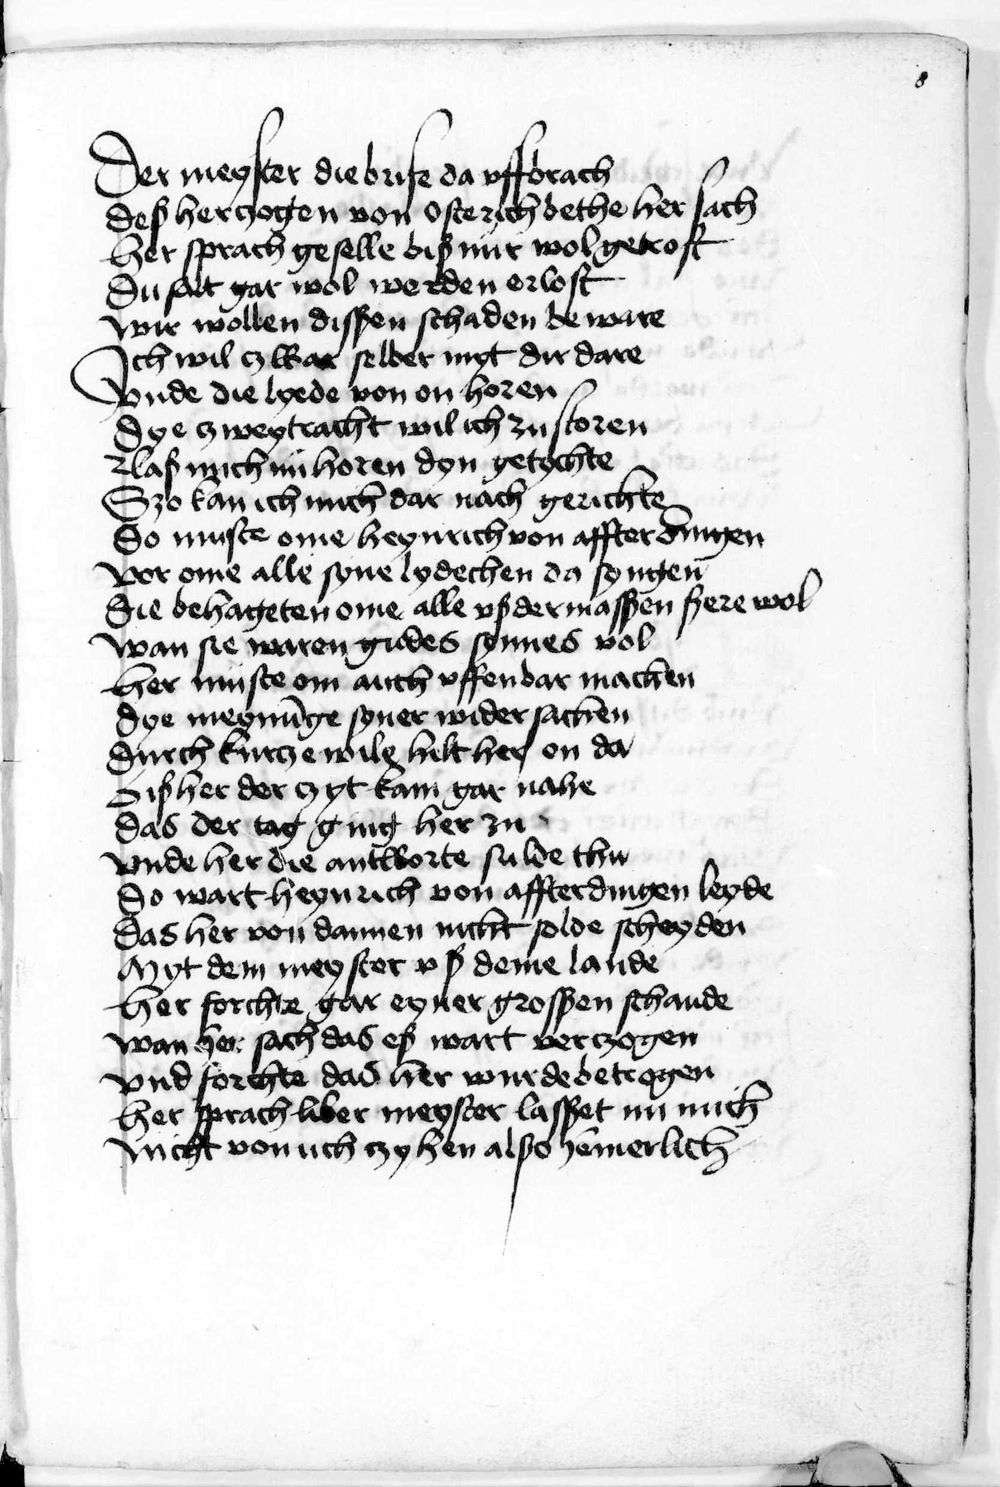 8
Der meyster die brife da vffbrach
deß herzcogen von Osterich bethe her sach
her sprach geselle biß nur wol getrost
Du salt gar wol werden erlost
wir wollen dissßen schaden beware
Jch wil czwar selber myt dir dare
vnde die lyede von on horen
Dye czweytracht wil ich zu storen
laß mich nu horen dyn getychte
Szo kan ich mich dar nach gerichte
So muste ome heynrich von affterdingen
vor ome alle syne lydechen da syngen
die behageten ome alle vß dermassßen szere wol
wan sie waren gudes synnes vol
her muste om auch vffenbar machen
dye meynūge syner wider sachen
durch kurcze wile hilt her on da
Biß her der czyt kam gar nahe
das der tag ging her zu
vnde her die antworte sulde thu
So wart heynrich von affterdingen leyde
das her von dannen nicht solde scheyden
Myt dem meyster vß deme lande
her forchte gar eyner grossßen schande
wan her sach das eß wart verczogen
vnd forchte das her wurde betrogen
her sprach liber meyster lasßet nu mich
nicht von uch czyhen alßo hemerlich